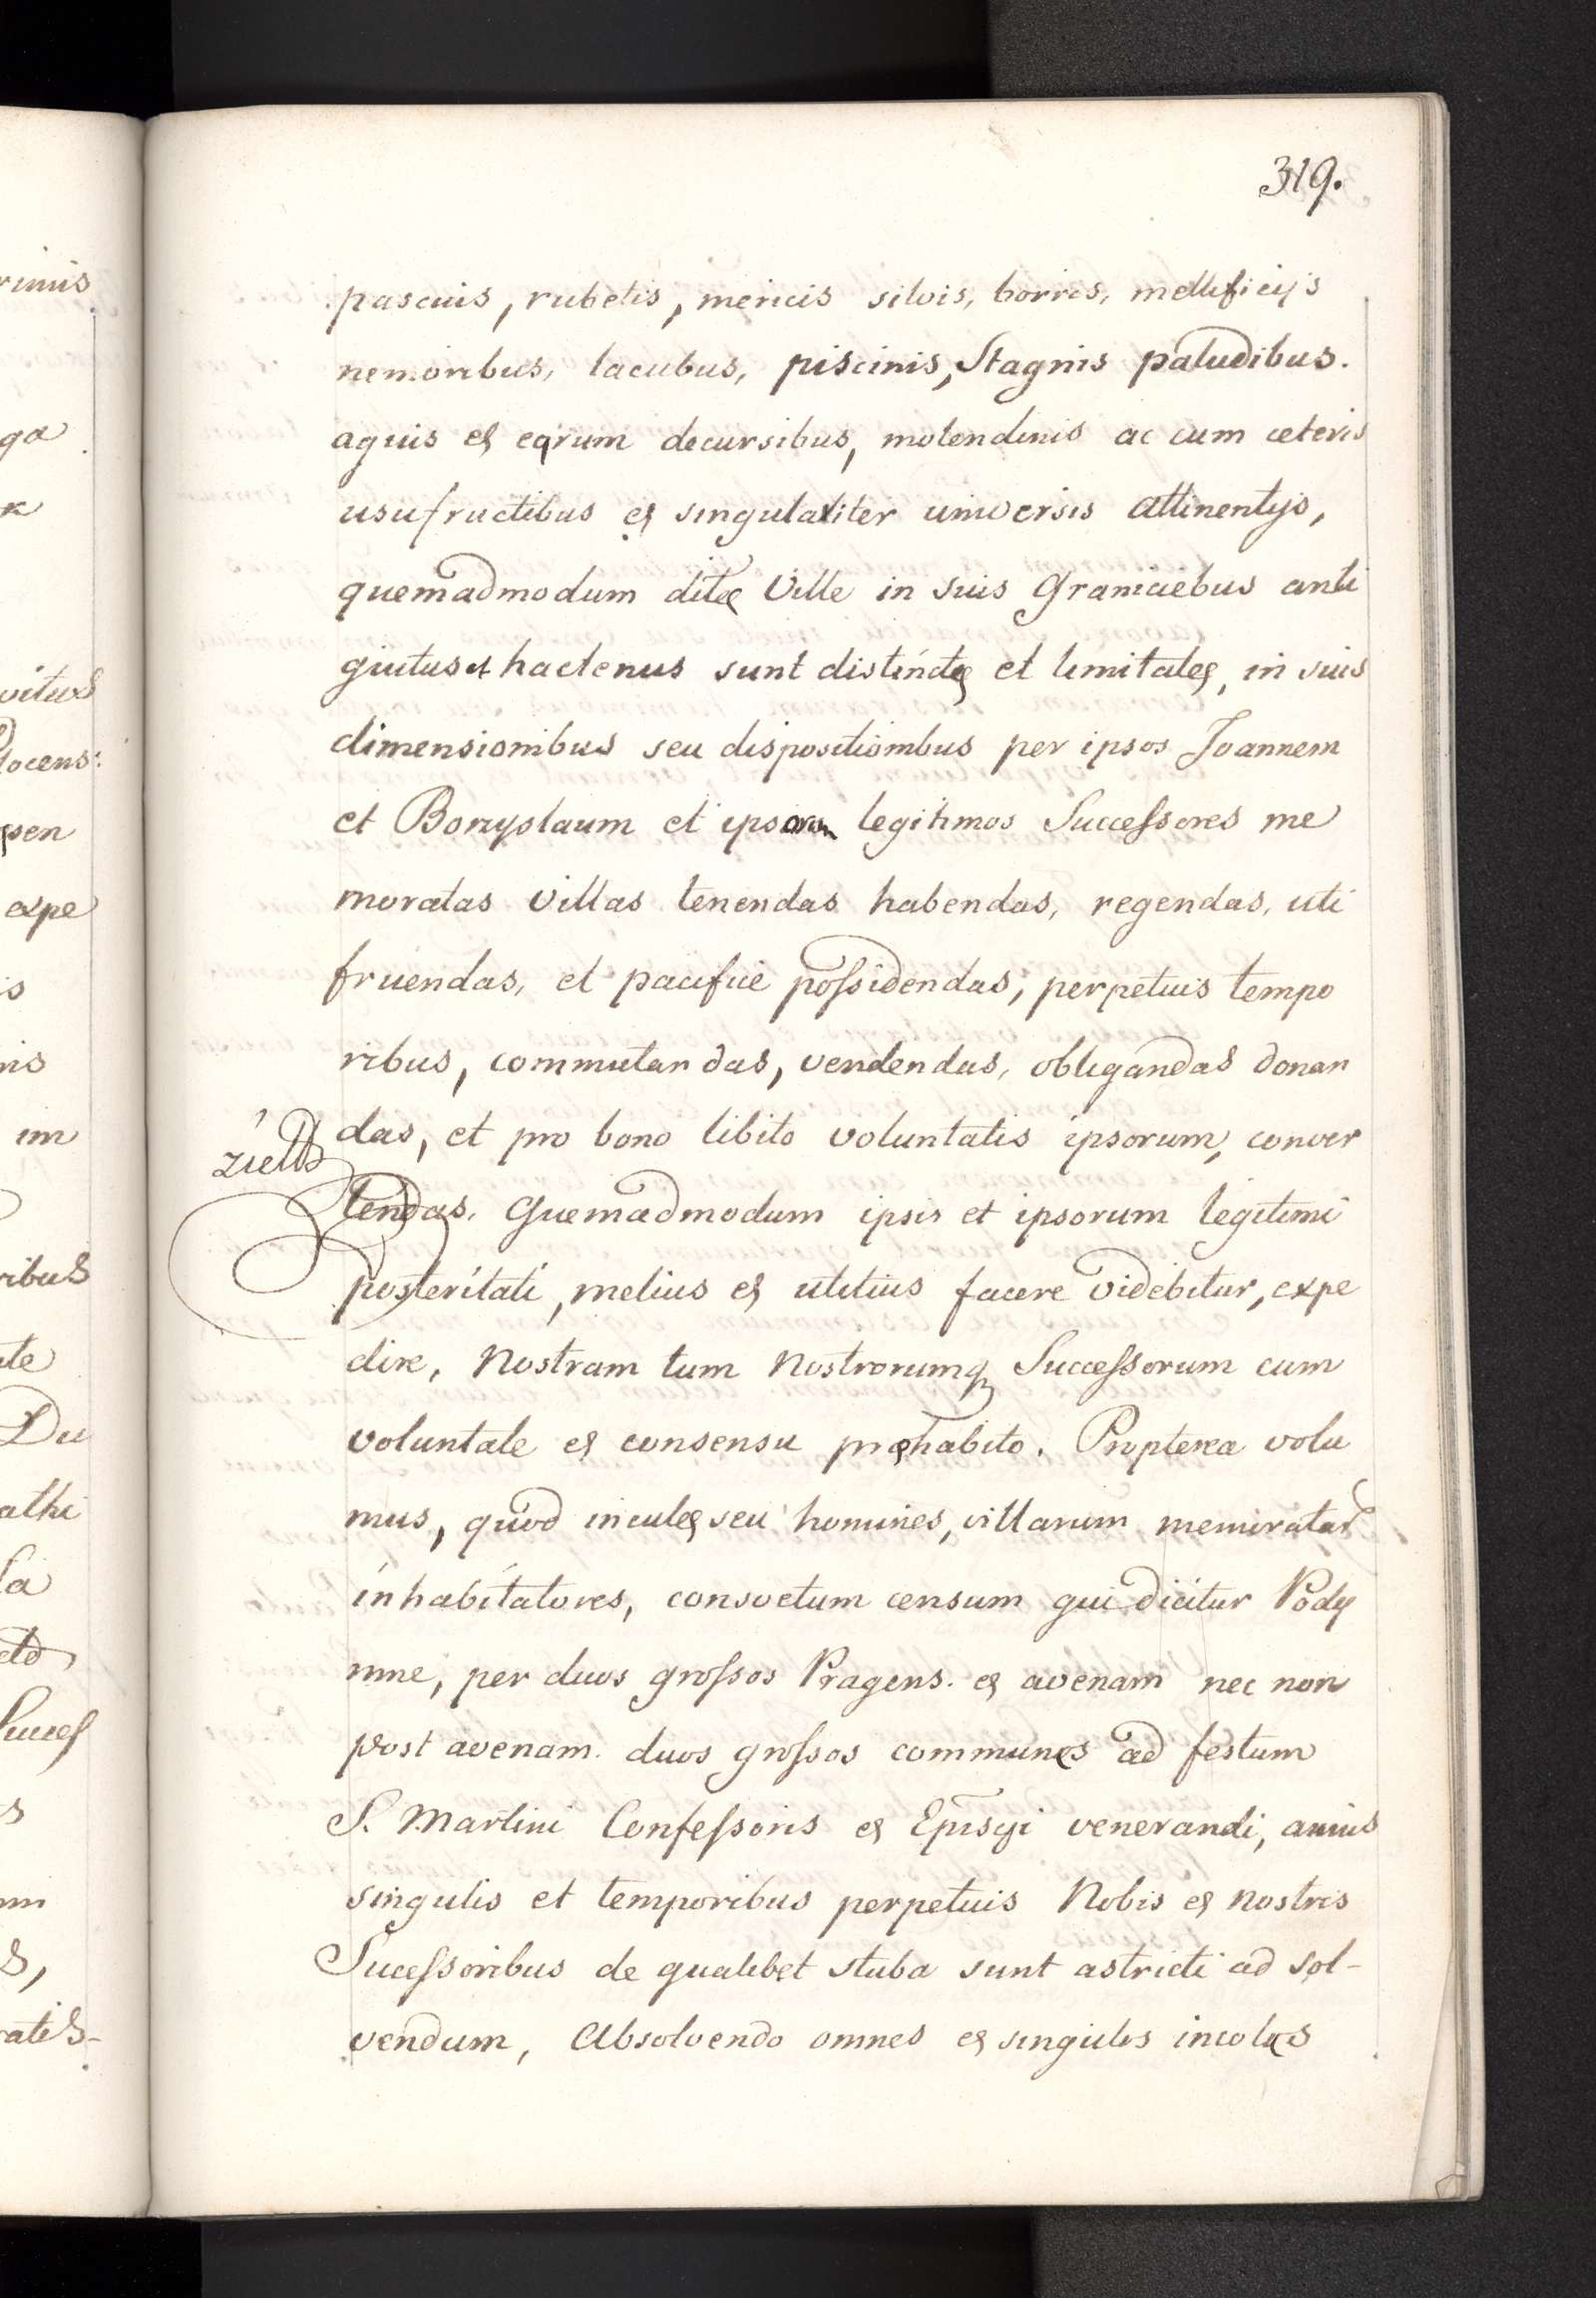 319.
pascuis, rubetis, mericis silvis, borris, mellificijs
nemoribus, lacubus, piscinis, Stagnis paludibus.
aquis et eqrum decursibus, molendinis ac cum ceteris
usufructibus et singulariter universis attinentijs,
quemadmodum ditæ Ville in suis Graniciebus anti
quitus et hactenus sunt distinctæ et limitatæ, in suis
dimensionibus seu dispositiombus per ipsos Joannem
et Borzyslaum et ipsorum legitimos Successores me
moratas Villas tenendas habendas, regendas, uti
fruendas, et pacifice possidendas, perpetuis tempo
ribus, commutandas, vendendas, obligandas donan
das, et pro bono libito voluntatis ipsorum, conver
tendas. Quemadmodum ipsis et ipsorum legitimi
posteritati, melius et utilius facere videbitur, expe
dire, Nostram tum Nostrorumq Successorum cum
voluntate et consensu præhabito. Propterea volu
mus, quod incolæ seu homines, villarum memoratar
inhabitatores, consvetum censum qui dicitur Pody
mne, per duos grossos Pragens. et avenam nec non
post avenam duos grossos communes ad festum
S. Martini Confessoris et Episcpi venerandi, annis
singulis et temporibus perpetuis Nobis et nostris
Sucessoribus de qualibet stuba sunt astricti ad sol-
vendum, Absolvendo omnes et singulos incolas